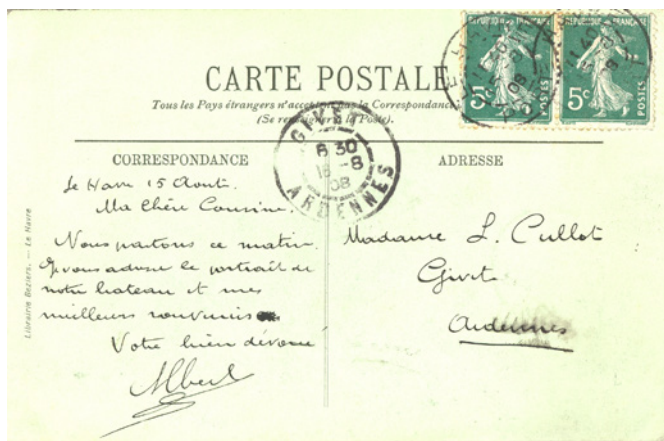 CARTE POSTALE
Tous les Pays étrangers n'acceptent pas la Correspondance
(Se renseigner à la Poste).
REPUBLIQUE FRANÇAISE
5c POSTES
REPUBLIQUE FRANÇAISE
5c POSTES
11 40
08
GIVET
8 30
16 - 8
08
ARDENNES
CORRESPONDANCE
Le Havre 15 Aout.
Ma Chère Cousine.
Nous partons ce matin.
Je vous adresse le portrait de
notre bateau et mes
meilleurs souvenirs
Votre bien dévoué
Albert
ADRESSE
Madame L. Cullot
Givet
Ardennes
Librairie Béziers. — Le Havre